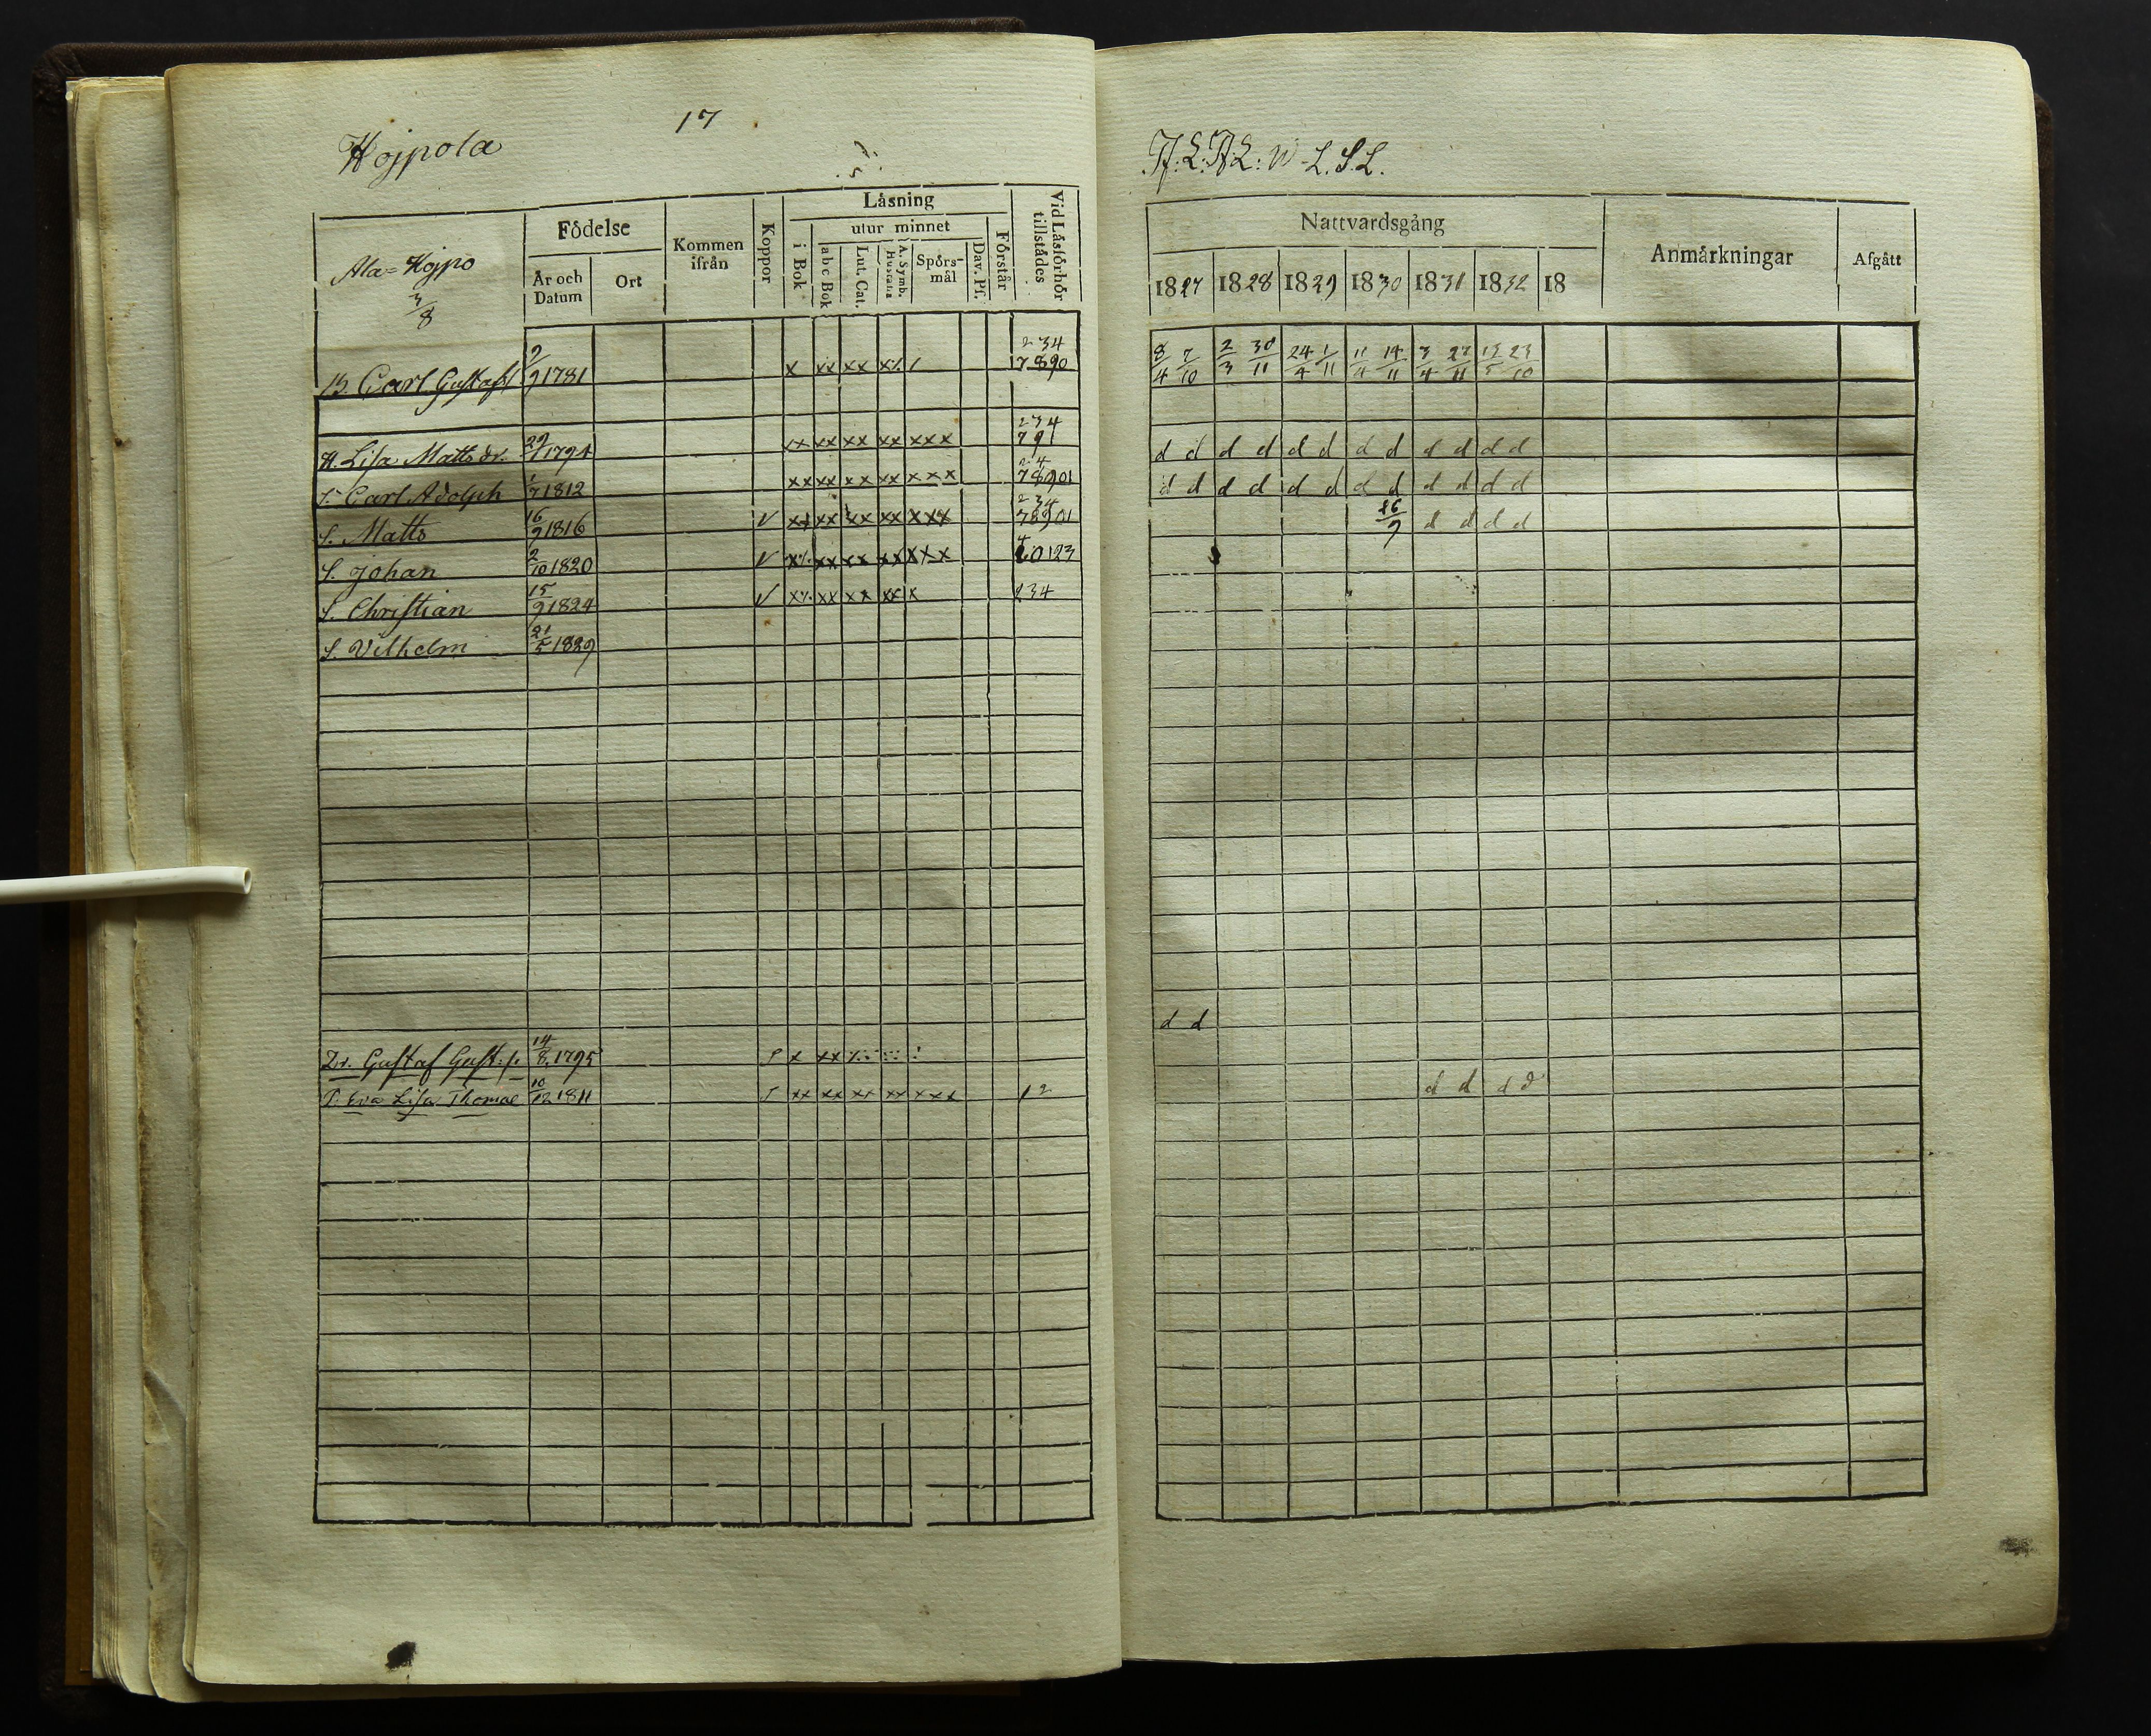 17
Hojpola
Ala=Hojpo
3/8
Födelse
År och Datum
Ort
Kommen ifrån
Koppor
Läsning
i Bok
utur minnet
abc Bok
Lut. Cat.
A. Symb. Hustafla
Spörs-mål
Dav. Ps.
Förstår
Vid Läsförhör tillstädes
B. Carl Gustafs 2/9 1781 x xx xx x⁒ / 234 7890
H. Lisa Matts dr. 1794 xx xx xx xx xxx 234 791
S. Carl Adolph 1/7 1812 xx xx xx xx xxx 24 78901
S. Matts 16/9 1816 v xx xx xx xx xxx 234 78901
S. Johan 2/10 1820 v x⁒ xx xx xx xxx 0123
S. Christian 15/9 1824 v x⁒ xx xx xx x 234
S. Vilhelm 21/5 1829
Dr. Gustaf Gust: s. 14/8 1795 x xx
P. Eva Lisa Thomae 10/12 1811 xx xx xx xx xxx 12
Nattvardsgång
Anmärkningar
Afgått
1827 1828 1829 1830 1831 1832 18
8/4 7/10 2/3 30/11 24/4 1/11 11/4 14/11 3/4 27/11 23/10
d d d d d d d d d d d d
d d d d d d d d d d d d
26/9 d d d d
d d
d d d d